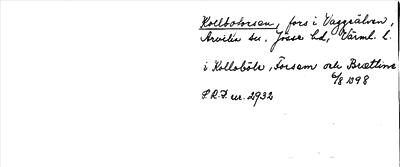 Kollbotorsen, fors i Vaggeälven,
Arvika sn. Jösse hd, Värml. l.
i Kolloböle, Forsom och Brættene
6/8 1398
S.R.P. nr. 2932